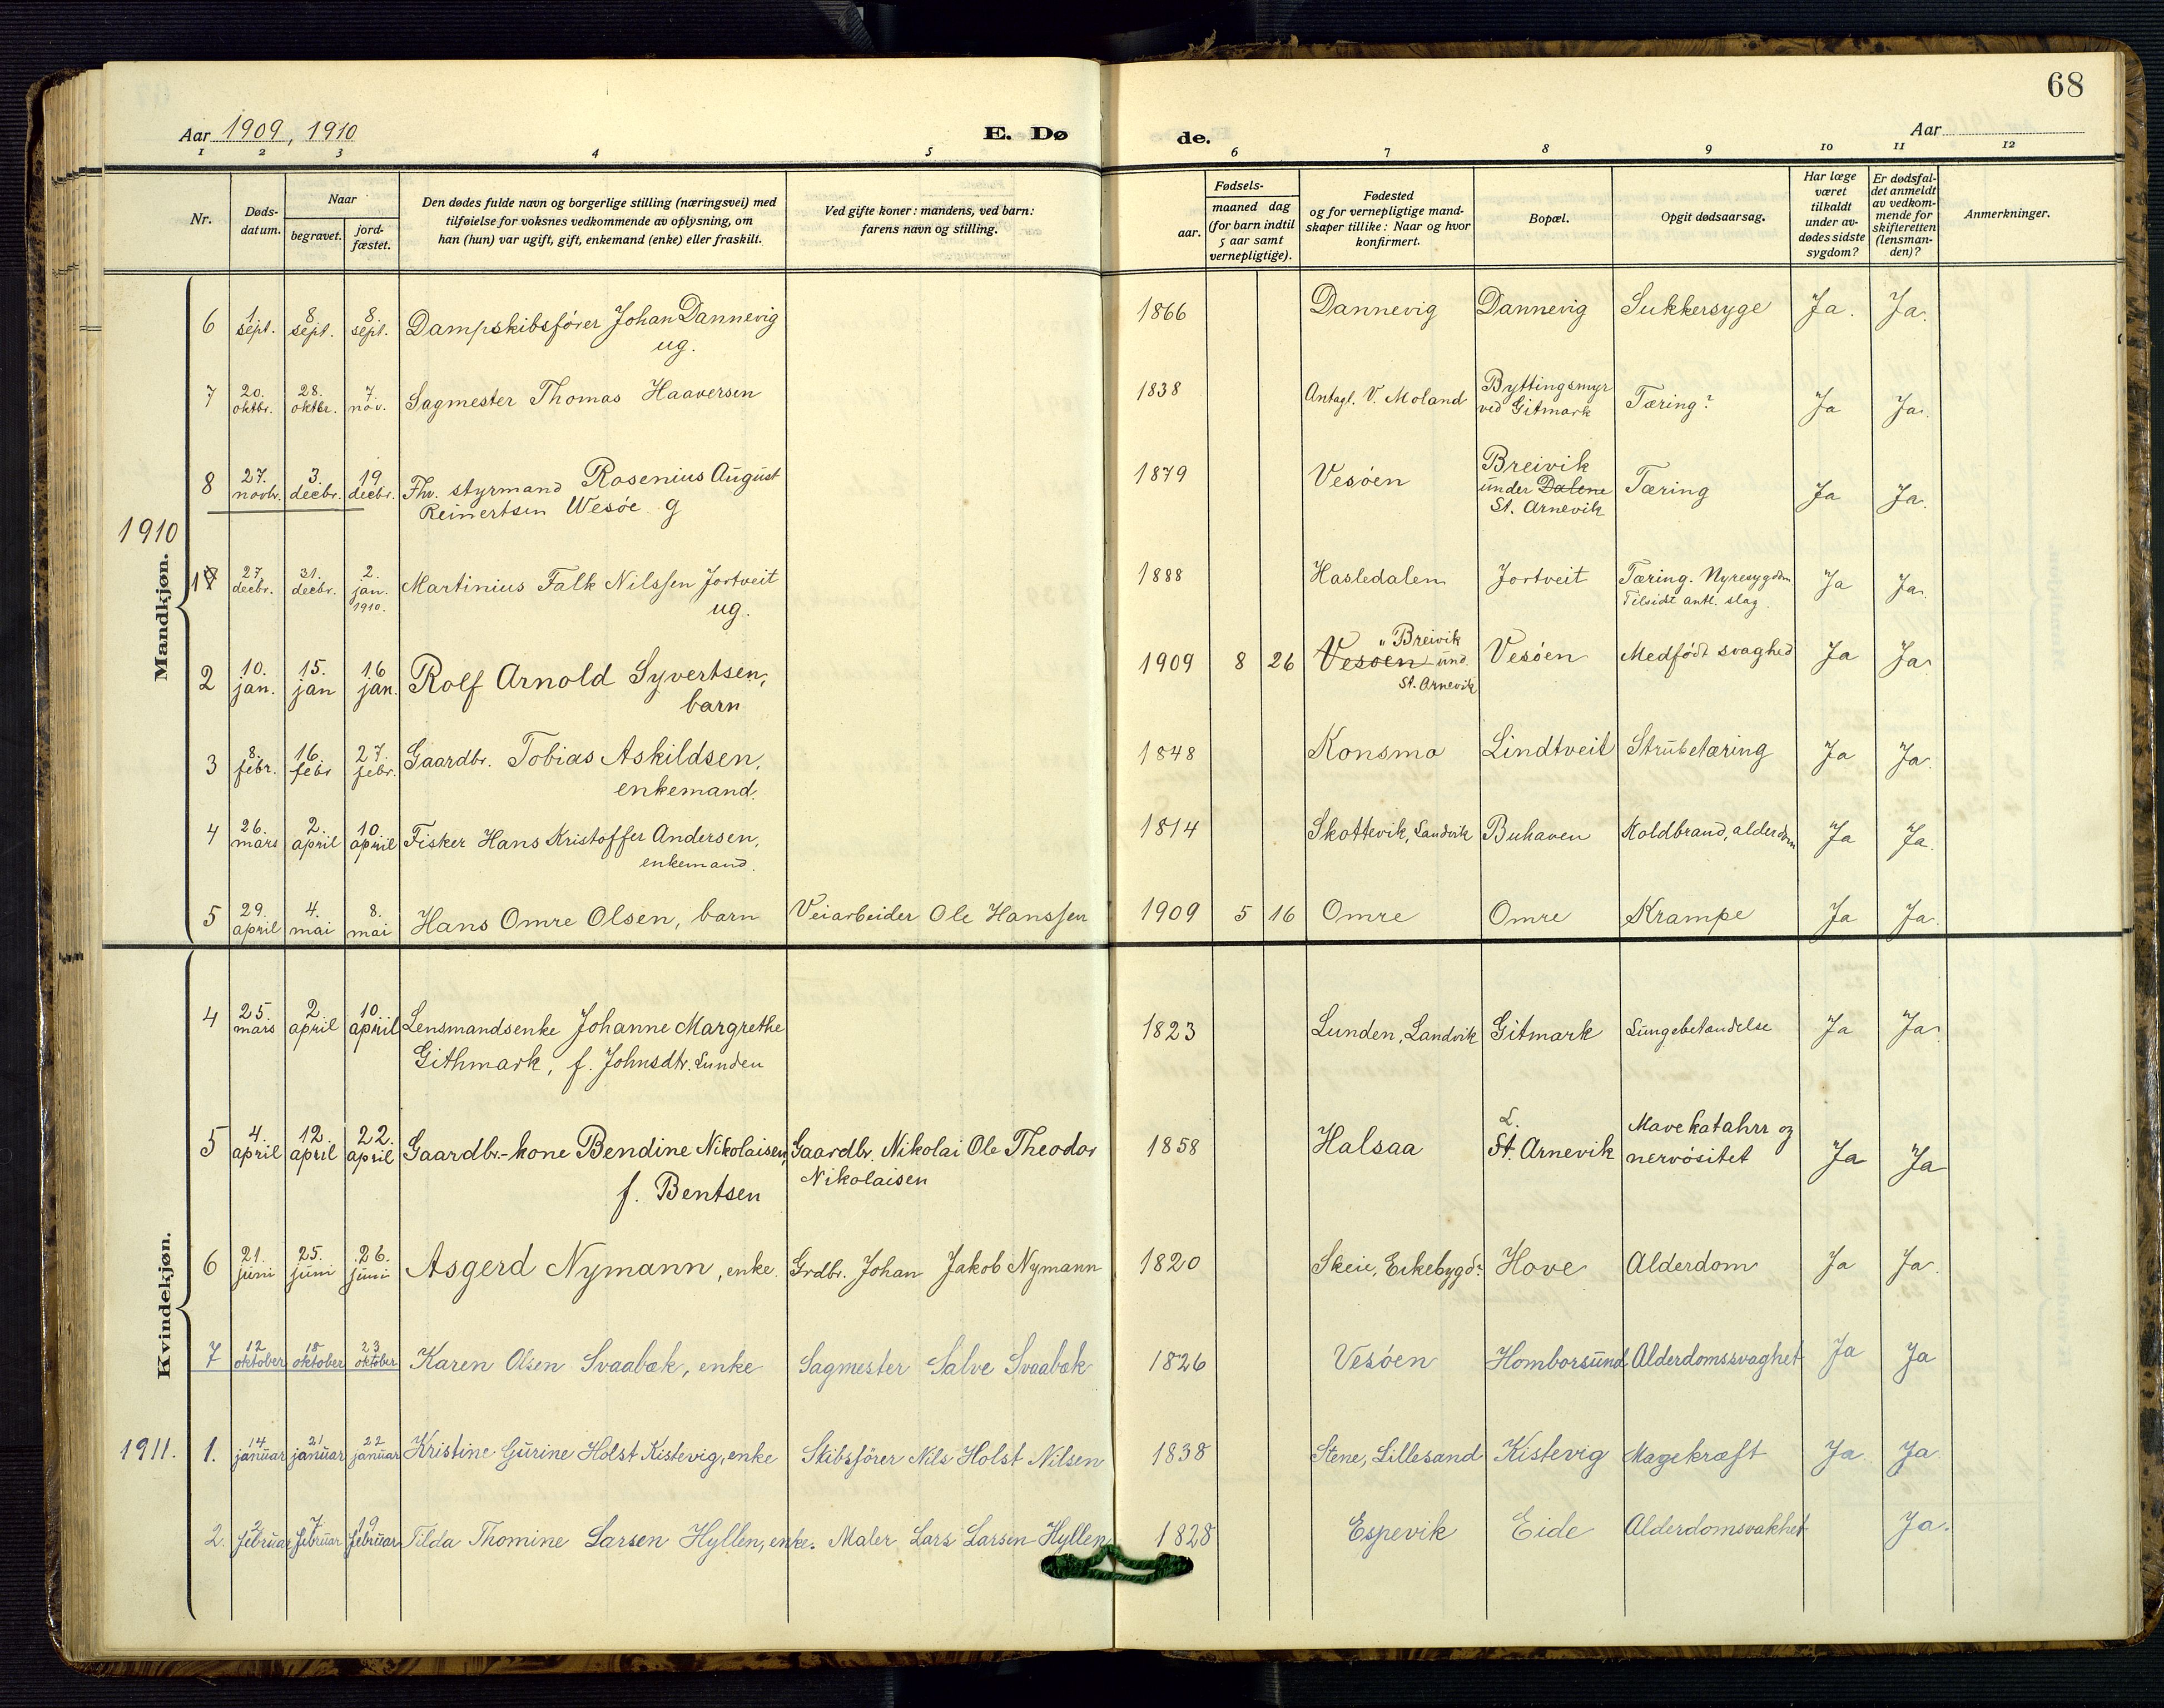 68
Aar 1909, 1910
E. Dø
de.
Aar
1 2 3 4 5 6 7 8 9 10 11 12
Nr.
Døds-
datum.
Naar
begravet.
jord-
fæstet.
Den dødes fulde navn og borgerlige stilling (næringsvei) med
tilføielse for voksnes vedkommende av oplysning, om
han (hun) var ugift, gift, enkemand (enke) eller fraskilt.
Ved gifte koner: mandens, ved barn:
farens navn og stilling.
Fødsels-
aar.
maaned dag
(for barn indtil
5 aar samt
vernepligtige).
Fødested
og for vernepligtige mand-
skaper tillike: Naar og hvor
konfirmert.
Bopæl.
Opgit dødsaarsag.
Har læge
været
tilkaldt
under av-
dødes sidste
sygdom?
Er dødsfal-
det anmeldt
av vedkom-
mende for
skifteretten
(lensman-
den)?
Anmerkninger.
Mandkjøn.
6 1. sept. 8. sept. 8. sept. Dampskibsfører Johan Dannevig 1866 Dannevig Dannevig Sukkersyge Ja. Ja.
ug.
7 20. oktbr. 28. oktbr. 7. nov. Sagmester Thomas Haaversen 1838 Antagl. V. Moland Byttingsmyr Tæring? Ja Ja.
ved Gitmark
8 27. novbr. 3. decbr. 19. decbr. Fhv. styrmand Rosenius August 1879 Vesøen Breivik Tæring Ja Ja.
Reinertsen Wesøe g
under Dalene
St. Arnevik
1910
1 27. decbr. 31. decbr. 2. jan. 1910. Martinius Falk Nilssen Jortveit 1888 Hasledalen Jortveit Tæring. Nyresygdom Ja Ja.
ug.
Tilsidst antl. slag.
2 10. jan. 15. jan 16 jan. Rolf Arnold Syvertsen, 1909 8 26 Vesøen Breivik Vesøen Medfødt svaghed Ja Ja
barn
und.
St. Arnevik
3 8. febr. 16. febr 27. febr. Gaardbr. Tobias Askildsen, 1848 Konsmo Lindtveit Strubetæring Ja Ja.
enkemand.
4 26. mars 2. april 10. april Fisker Hans Kristoffer Andersen, 1814 Skottevik, Landvik Buhaven Koldbrand, alderdom Ja Ja.
enkemand.
5 29. april 4. mai 8. mai Hans Omre Olsen, barn Veiarbeider Ole Hanssen 1909 5 16 Omre Omre Krampe Ja Ja.
Kvindekjøn.
4 25. mars 2. april 10. april Lensmandsenke Johanne Margrethe 1823 Lunden, Landvik Gitmark Lungebetændelse Ja Ja.
Githmark, f. Johnsdtr. Lunden
5 4. april 12. april 22. april Gaardbr.-kone Bendine Nikolaisen, Gaardbr. Nikolai Ole Theodor 1858 Halsaa L. St. Arnevik Mavekatahrr og Ja Ja
f. Bentsen Nikolaisen nervøsitet
6 21. juni 25. juni 26. juni Asgerd Nymann, enke. Grdbr. Johan Jakob Nymann 1820 Skeie, Eikebygd? Hove Alderdom Ja Ja.
7 12 oktober 18 oktober 23 oktober Karen Olsen Svaabæk, enke Sagmester Salve Svaabæk 1826 Vesøen Homborsund Alderdomssvaghet Ja Ja
1911.
1. 14 januar 21 januar 22 januar Kristine Gurine Holst Kistevig, enke Skibsfører Nils Holst Nilsen 1838 Stene, Lillesand Kistevig Magekræft Ja Ja
2. 2 februar 7 februar 19 februar Tilda Thomine Larsen Hyllen, enke. Maler Lars Larsen Hyllen 1828 Espevik Eide Alderdomsvakhet Ja.